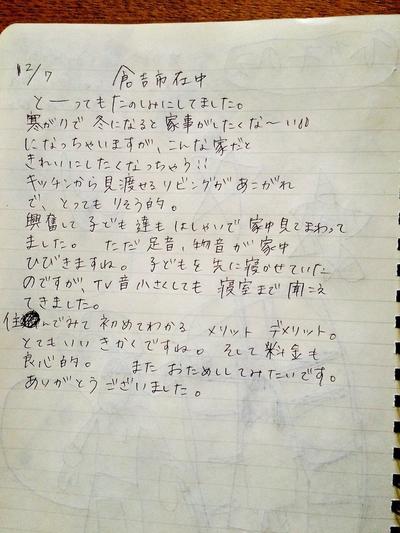 12/7 倉吉市在中
と―ってもたのしみにしてました。
寒がりで 冬になると 家事がしたくな～い!!
になっちゃいますが、こんな家だと
きれいにしたくなっちゃう!!
キッチンから見渡せるリビングがあこがれ
で、とってもりそう的。
興奮して 子ども達も はしゃいで 家中見てまわって
ました。 ただ 足音、物音が 家中
ひびきますね。 子どもを 先に 寝かせていた
のですが、TV音 小さくしても 寝室まで 聞こえ
てきました。
住んでみて 初めてわかる メリット デメリット。
とてもいい きかくですね。 そして 料金も
良心的。 また おためししてみたいです。
ありがとう ございました。